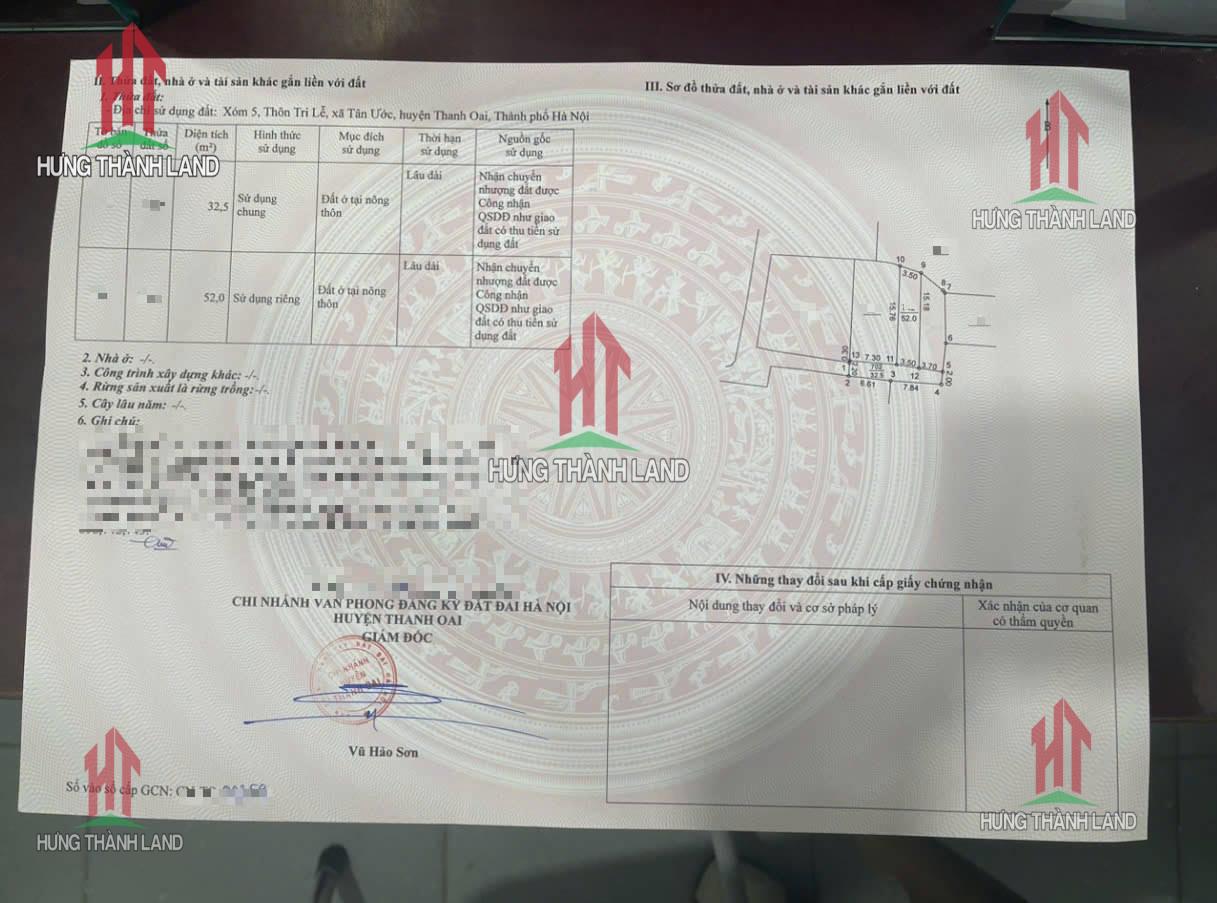 II. Thửa đất, nhà ở và tài sản khác gắn liền với đất
1. Thửa đất:
- Địa chỉ sử dụng đất: Xóm 5, Thôn Tri Lễ, xã Tân Ước, huyện Thanh Oai, Thành phố Hà Nội
Tờ bản đồ số
Thửa đất số
Diện tích (m²)
Hình thức sử dụng
Mục đích sử dụng
Thời hạn sử dụng
Nguồn gốc sử dụng
32,5
Sử dụng
chung
Đất ở tại nông
thôn
Lâu dài
Nhận chuyển
nhượng đất được
Công nhận
QSDĐ như giao
đất có thu tiền sử
dụng đất
52,0
Sử dụng riêng
Đất ở tại nông
thôn
Lâu dài
Nhận chuyển
nhượng đất được
Công nhận
QSDĐ như giao
đất có thu tiền sử
dụng đất
2. Nhà ở: -/-.
3. Công trình xây dựng khác: -/-.
4. Rừng sản xuất là rừng trồng: -/-.
5. Cây lâu năm: -/-.
6. Ghi chú:
CHI NHÁNH VĂN PHÒNG ĐĂNG KÝ ĐẤT ĐAI HÀ NỘI
HUYỆN THANH OAI
GIÁM ĐỐC
CHI NHÁNH
HUYỆN
THANH OAI
Vũ Hảo Sơn
Số vào sổ cấp GCN:
III. Sơ đồ thửa đất, nhà ở và tài sản khác gắn liền với đất
B
10
9
3.50
8
7
15.76
15.18
52.0
6
13
7.30
11
3.50
3.70
5
1
702
32.5
3
12
2.00
2
6.61
7.84
4
IV. Những thay đổi sau khi cấp giấy chứng nhận
Nội dung thay đổi và cơ sở pháp lý
Xác nhận của cơ quan
có thẩm quyền
HT
HƯNG THÀNH LAND
HT
HƯNG THÀNH LAND
HT
HƯNG THÀNH LAND
HT
HƯNG THÀNH LAND
HT
HƯNG THÀNH LAND